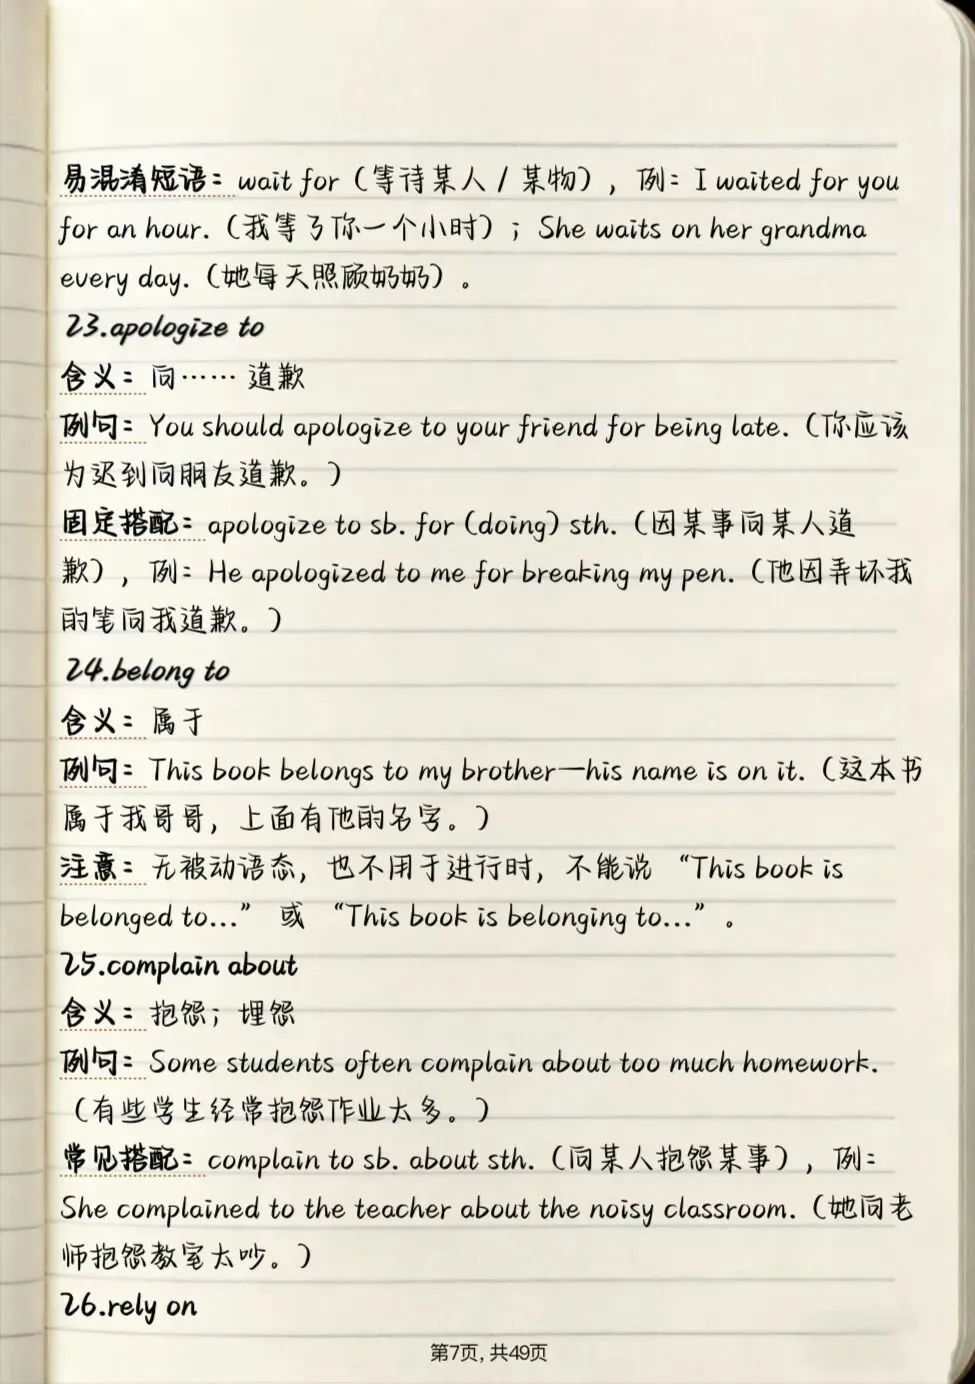 易混淆短语：wait for（等待某人 / 某物），例：I waited for you
for an hour.（我等了你一个小时）；She waits on her grandma
every day.（她每天照顾奶奶）。
23.apologize to
含义：向…… 道歉
例句：You should apologize to your friend for being late.（你应该
为迟到向朋友道歉。）
固定搭配：apologize to sb. for (doing) sth.（因某事向某人道
歉），例：He apologized to me for breaking my pen.（他因弄坏我
的笔向我道歉。）
24.belong to
含义：属于
例句：This book belongs to my brother—his name is on it.（这本书
属于我哥哥，上面有他的名字。）
注意：无被动语态，也不用于进行时，不能说 “This book is
belonged to...” 或 “This book is belonging to...” 。
25.complain about
含义：抱怨；埋怨
例句：Some students often complain about too much homework.
（有些学生经常抱怨作业太多。）
常见搭配：complain to sb. about sth.（向某人抱怨某事），例：
She complained to the teacher about the noisy classroom.（她向老
师抱怨教室太吵。）
26.rely on
第7页, 共49页